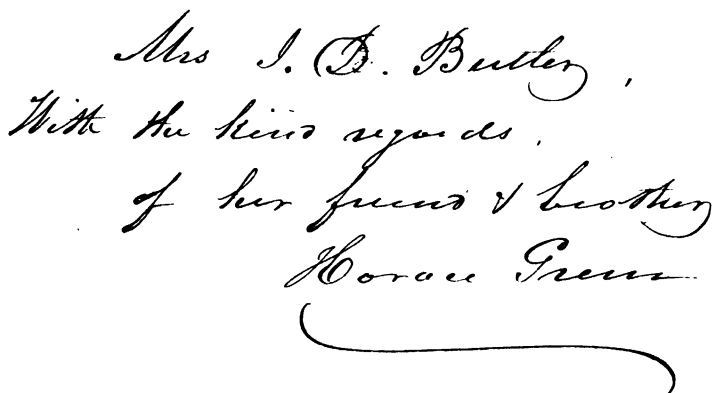 Mrs J. D. Butler,
With the kind regards.
of her friend & brother
Horace Green